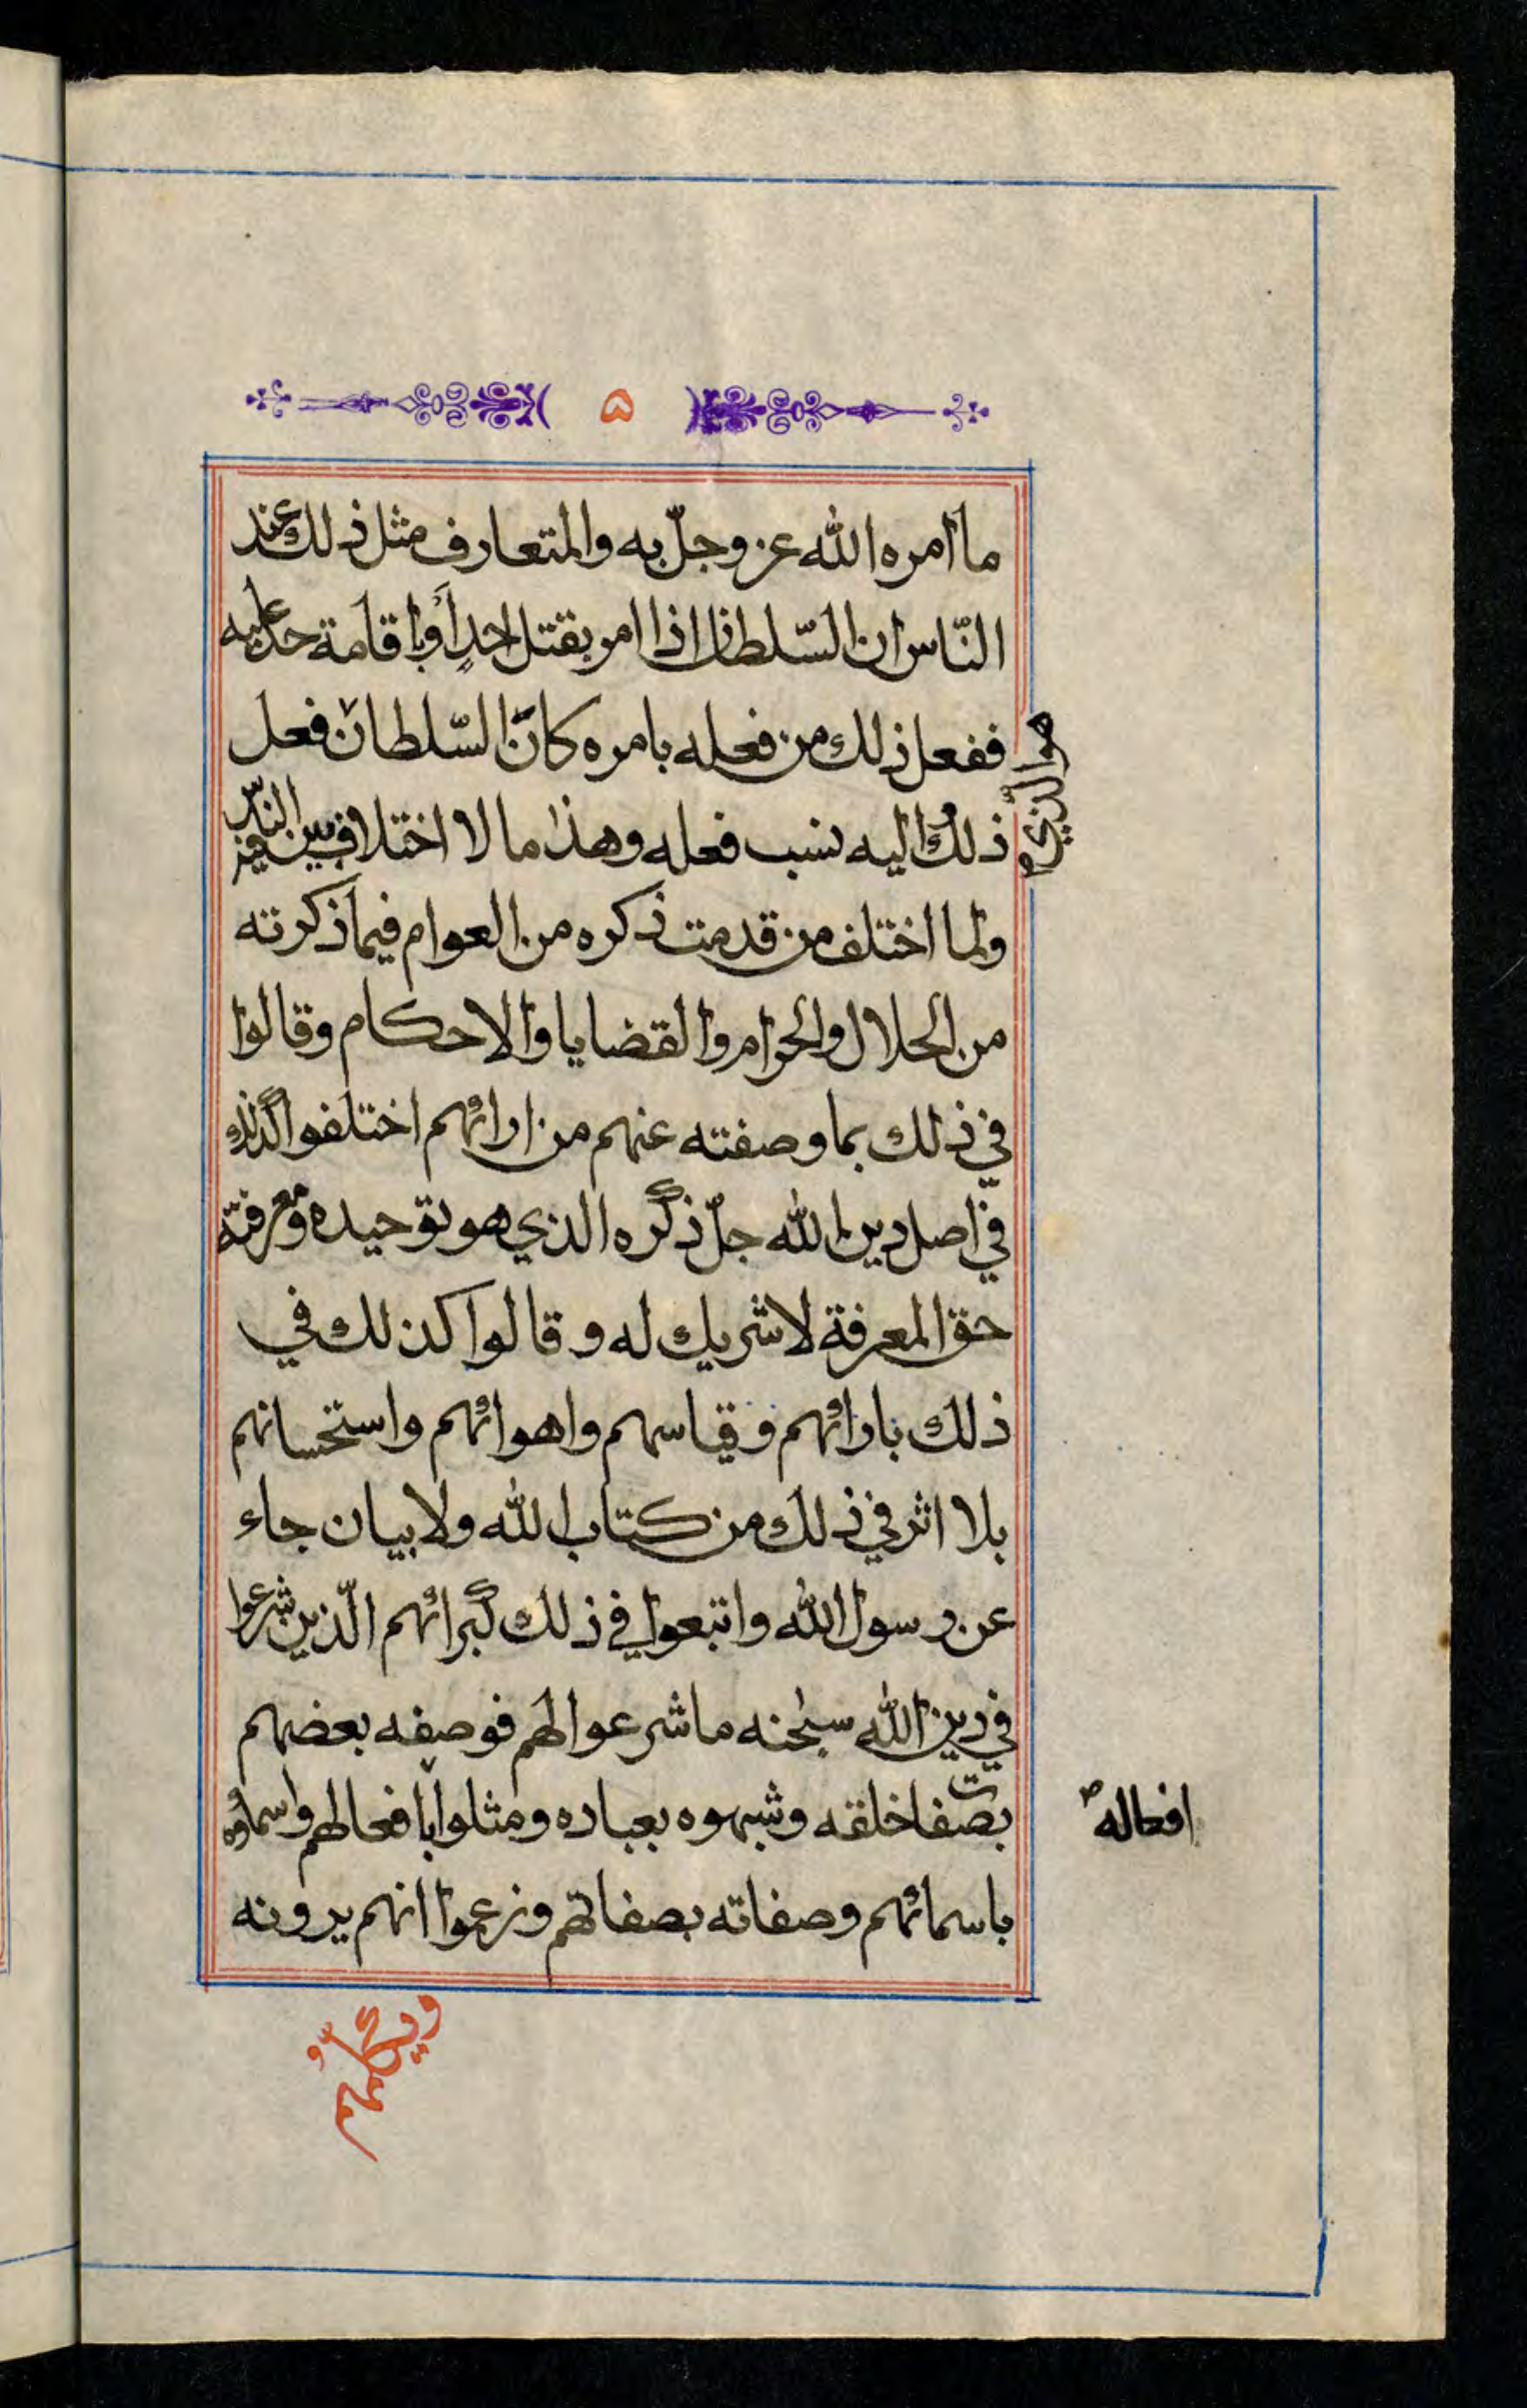 ۵
ما أمره الله عز وجلّ به والمتعارف مثل ذلك عند
النّاس ان السّلطان اذا امر بقتل احدٍ أو باقامة حد عليه
ففعل ذلك من فعله بامره كانّ السّلطان فعل
هو الذي
ذلك واليه نسب فعله وهذا ما لا اختلاف فيه بين
ولما اختلف من قدمت ذكره من العوام فيما ذكرته
من الحلال والحرام والقضايا والاحكام وقالوا
في ذلك بما وصفته عنهم من ارائهم اختلفوا كذلك
في اصل دين الله جلّ ذكره الذي هو توحيده ومعرفته
حق المعرفة لا شريك له وقالوا كذلك في
ذلك بارائهم وقياسهم واهوائهم واستحسانهم
بلا اثر في ذلك من كتاب الله ولا بيان جاء
عن رسول الله واتبعوا في ذلك كبرائهم الّذين شرعوا
في دين الله سبحنه ما شرعوا لهم فوصفه بعضهم
بصفات خلقه وشبهوه بعباده ومثلوا بافعالهم واسماؤه
افعاله ص
باسمائهم وصفاته بصفاتهم وزعموا انهم يرونه